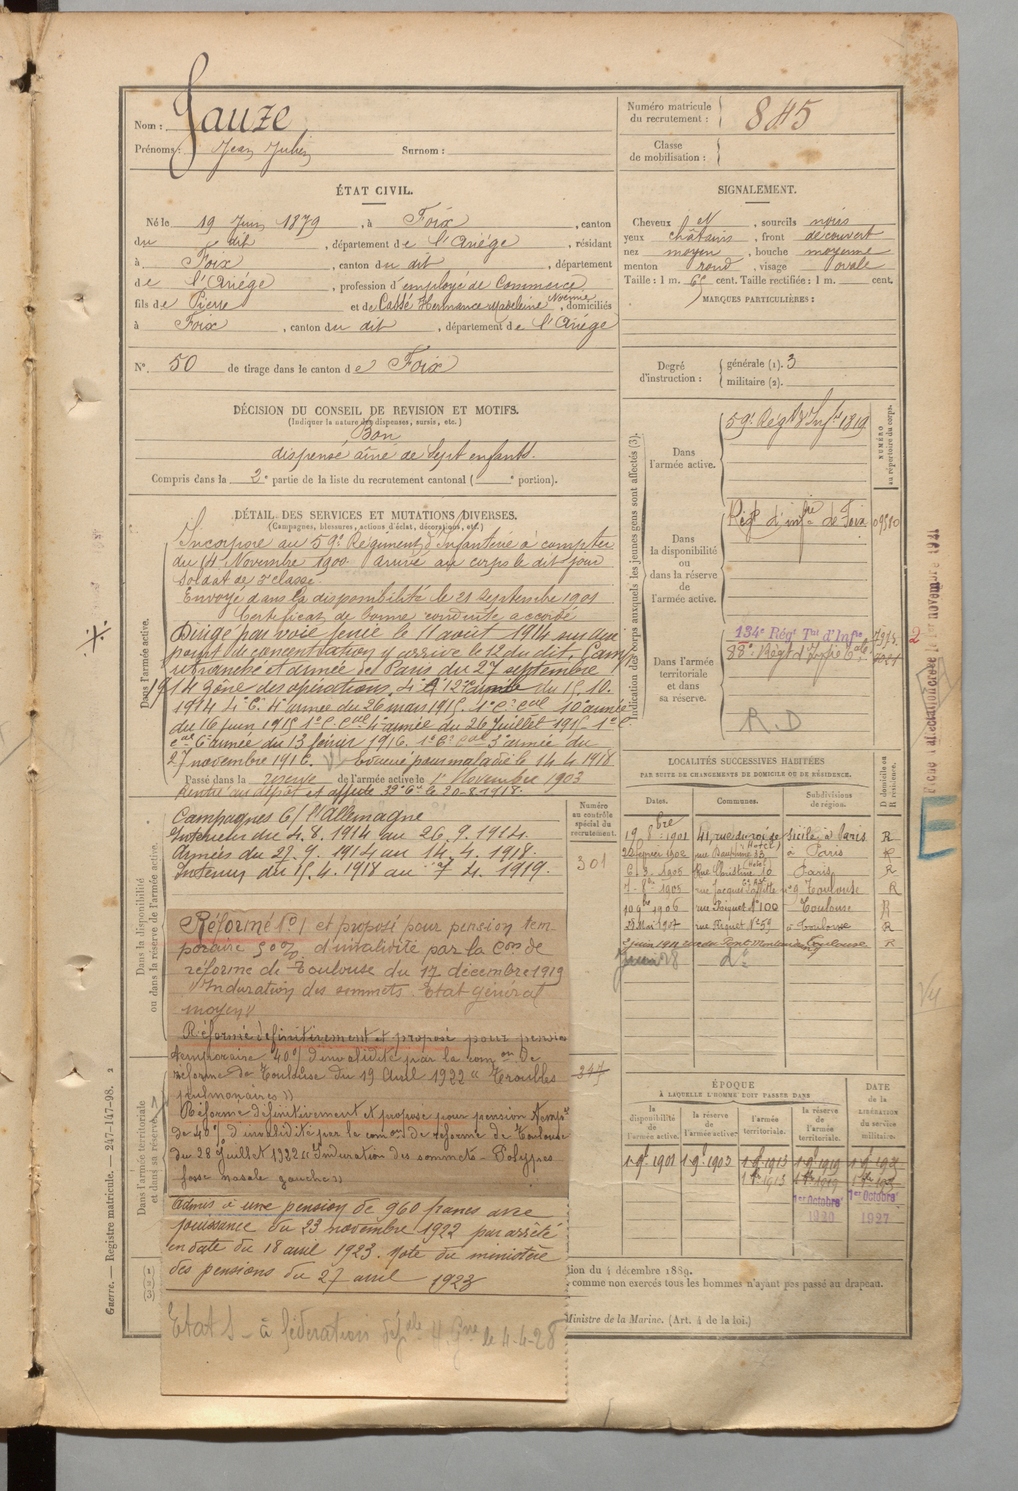 Nom : Gauze
Prénoms : Jean Julien Surnom :
Numéro matricule du recrutement : 845
Classe de mobilisation :
ÉTAT CIVIL.
Né le 19 Juin 1879, à Foix, canton
du dit, département de l'Ariége, résidant
à Foix, canton du dit, département
de l'Ariége, profession d'employé de Commerce
fils de Pierre et de Cassé Hermance Madeleine Noémie, domiciliés
à Foix, canton du dit, département de l'Ariége
N° 50 de tirage dans le canton de Foix
SIGNALEMENT.
Cheveux N, sourcils noirs
yeux châtains, front découvert
nez moyen, bouche moyenne
menton rond, visage ovale
Taille : 1 m. 65 cent. Taille rectifiée : 1 m. cent.
MARQUES PARTICULIÈRES :
Degré d'instruction : générale (1). 3
militaire (2).
DÉCISION DU CONSEIL DE REVISION ET MOTIFS.
(Indiquer la nature des dispenses, sursis, etc.)
Bon
dispensé aîné de sept enfants.
Compris dans la 2e partie de la liste du recrutement cantonal ( e portion).
DÉTAIL DES SERVICES ET MUTATIONS DIVERSES.
(Campagnes, blessures, actions d'éclat, décorations, etc.)
Dans l'armée active.
Incorporé au 59e Régiment d'Infanterie à compter
du 14 Novembre 1900. Arrivé au corps le dit jour
soldat de 2e classe.
Envoyé dans la disponibilité le 21 Septembre 1901
Certificat de bonne conduite accordé
Dirigé par voie ferrée le 11 août 1914 sur un
point de concentration y arrive le 12 du dit. Camp
retranché et armée de Paris du 27 septembre
1914 zone des opérations. 4e 12e armée du 15.10.
1914 4e C. 4e armée du 26 mars 1915. 1er C. cal 10e armée
du 16 juin 1915 1er C. cal 4e armée du 26 Juillet 1915. 1er C
cal 6e armée du 13 février 1916. 1er C. cal 3e armée du
27 novembre 1916. Evacué pour maladie le 14.4.1918
Passé dans la réserve de l'armée active le 1er Novembre 1903
Rentré au dépôt et affecté 32e Cie le 20-8-1918.
Dans la disponibilité ou dans la réserve de l'armée active.
Campagnes C/ l'Allemagne
Intérieur du 4.8.1914 au 26.9.1914
Armées du 27.9.1914 au 14.4.1918.
Intérieur du 15.4.1918 au 7 4. 1919.
Réformé N° 1 et proposé pour pension tem
poraire 50% d'invalidité par la Con de
réforme de Toulouse du 17 décembre 1919
"Induration des sommets. Etat général
moyen"
Réformé définitivement et proposé pour pension
temporaire 40% d'invalidité par la comon de
réforme de Toulouse du 19 Avril 1922 "Troubles
pulmonaires"
Dans l'armée territoriale et dans sa réserve.
Réformé définitivement et proposé pour pension tempre
de 40% d'invalidité par la comon de réforme de Toulouse
du 28 Juillet 1922 "Induration des sommets - Polypes
fosse nasale gauche"
Admis à une pension de 960 francs avec
jouissance du 23 novembre 1922 par arrêté
en date du 18 avril 1923. Note du ministère
des pensions du 27 avril 1923
Etat S - à fédération le 4-4-28
Indication des corps auxquels les jeunes gens sont affectés (3).
NUMÉRO au répertoire du corps.
Dans l'armée active.
59e Régt d'Infie 1819
Dans la disponibilité ou dans la réserve de l'armée active.
Régt d'infie de Foix 09510
Dans l'armée territoriale et dans sa réserve.
134e Régt Tal d'Infie
88e Régt d'Infie
R.D
LOCALITÉS SUCCESSIVES HABITÉES
PAR SUITE DE CHANGEMENTS DE DOMICILE OU DE RÉSIDENCE.
Dates. Communes. Subdivisions de région. D domicile ou R résidence.
19 8bre 1901 41, rue du roi de Sicile à Paris R
20 1902 rue Dauphine 33 à Paris R
6-3-1905 Rue Christine 10 Paris R
1905 rue Jacques Laffitte Toulouse R
10 9bre 1906 rue Riquet N° 100 Toulouse R
23 Mai 1907 rue Riquet N° 59 à Toulouse R
Toulouse R
28 do
Numéro au contrôle spécial du recrutement.
301
347
ÉPOQUE
À LAQUELLE L'HOMME DOIT PASSER DANS
la disponibilité de l'armée active. la réserve de l'armée active. l'armée territoriale. la réserve de l'armée territoriale.
DATE de la LIBÉRATION du service militaire.
1 9bre 1901 1 9bre 1903 1 9bre 1913 1 9bre 1919
1er Octobre 1920 1er Octobre 1927
tion du 4 décembre 1889.
comme non exercés tous les hommes n'ayant pas passé au drapeau.
Ministre de la Marine. (Art. 4 de la loi.)
Guerre. — Registre matricule. — 247-147-98. 2
E